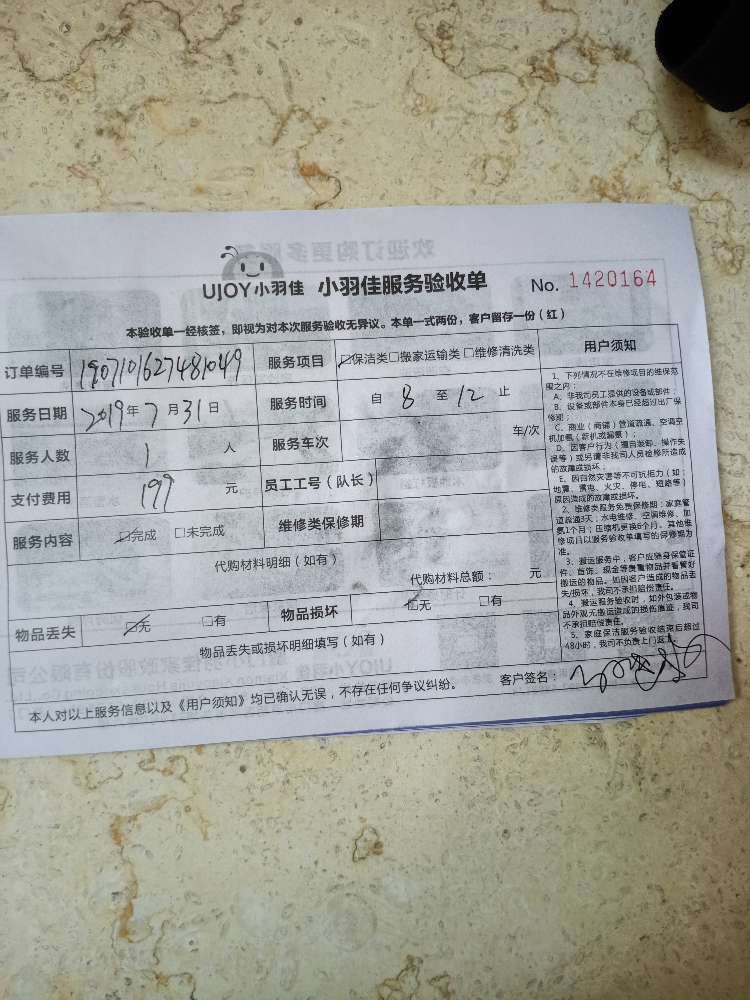 UJOY小羽佳 小羽佳服务验收单 No. 1420164
本验收单一经核签，即视为对本次服务验收无异议。本单一式两份，客户留存一份（红）
订单编号 1907101627481049 服务项目 ☑保洁类□搬家运输类□维修清洗类
服务日期 2019年7月31日 服务时间 自 8 至 12 止
服务人数 1 人 服务车次 车/次
支付费用 199 元 员工工号（队长）
服务内容 ☑完成 □未完成 维修类保修期
代购材料明细（如有）
代购材料总额： 元
物品丢失 ☑无 □有 物品损坏 ☑无 □有
物品丢失或损坏明细填写（如有）
本人对以上服务信息以及《用户须知》均已确认无误，不存在任何争议纠纷。 客户签名：
用户须知
1、下列情况不在维修项目的维保范
围之内：
A、非我司员工提供的设备或部件；
B、设备或部件本身已经超过出厂保
修期；
C、商业（商铺）管道疏通、空调空
机加氨（新机或漏氨）；
D、因客户行为（擅自装卸、操作失
误等）或另请非我司人员检修所造成
的故障或损坏；
E、因自然灾害等不可抗拒力（如：
地震、雷电、火灾、停电、短路等）
原因造成的故障或损坏。
2、维修类服务免费保修期：家庭管
道疏通3天；水电维修、空调维修、加
氨1个月；压缩机更换6个月。其他维
修项目以服务验收单填写的保修期为
准。
3、搬运服务中，客户应随身保管证
件、首饰、现金等贵重物品并看管好
搬运的物品。如因客户造成的物品丢
失/损坏，我司不承担赔偿责任。
4、搬运服务验收时，如外包装或物
品外观无搬运造成的损伤痕迹，我司
不承担赔偿责任。
5、家庭保洁服务验收结束后超过
48小时，我司不负责上门返工。